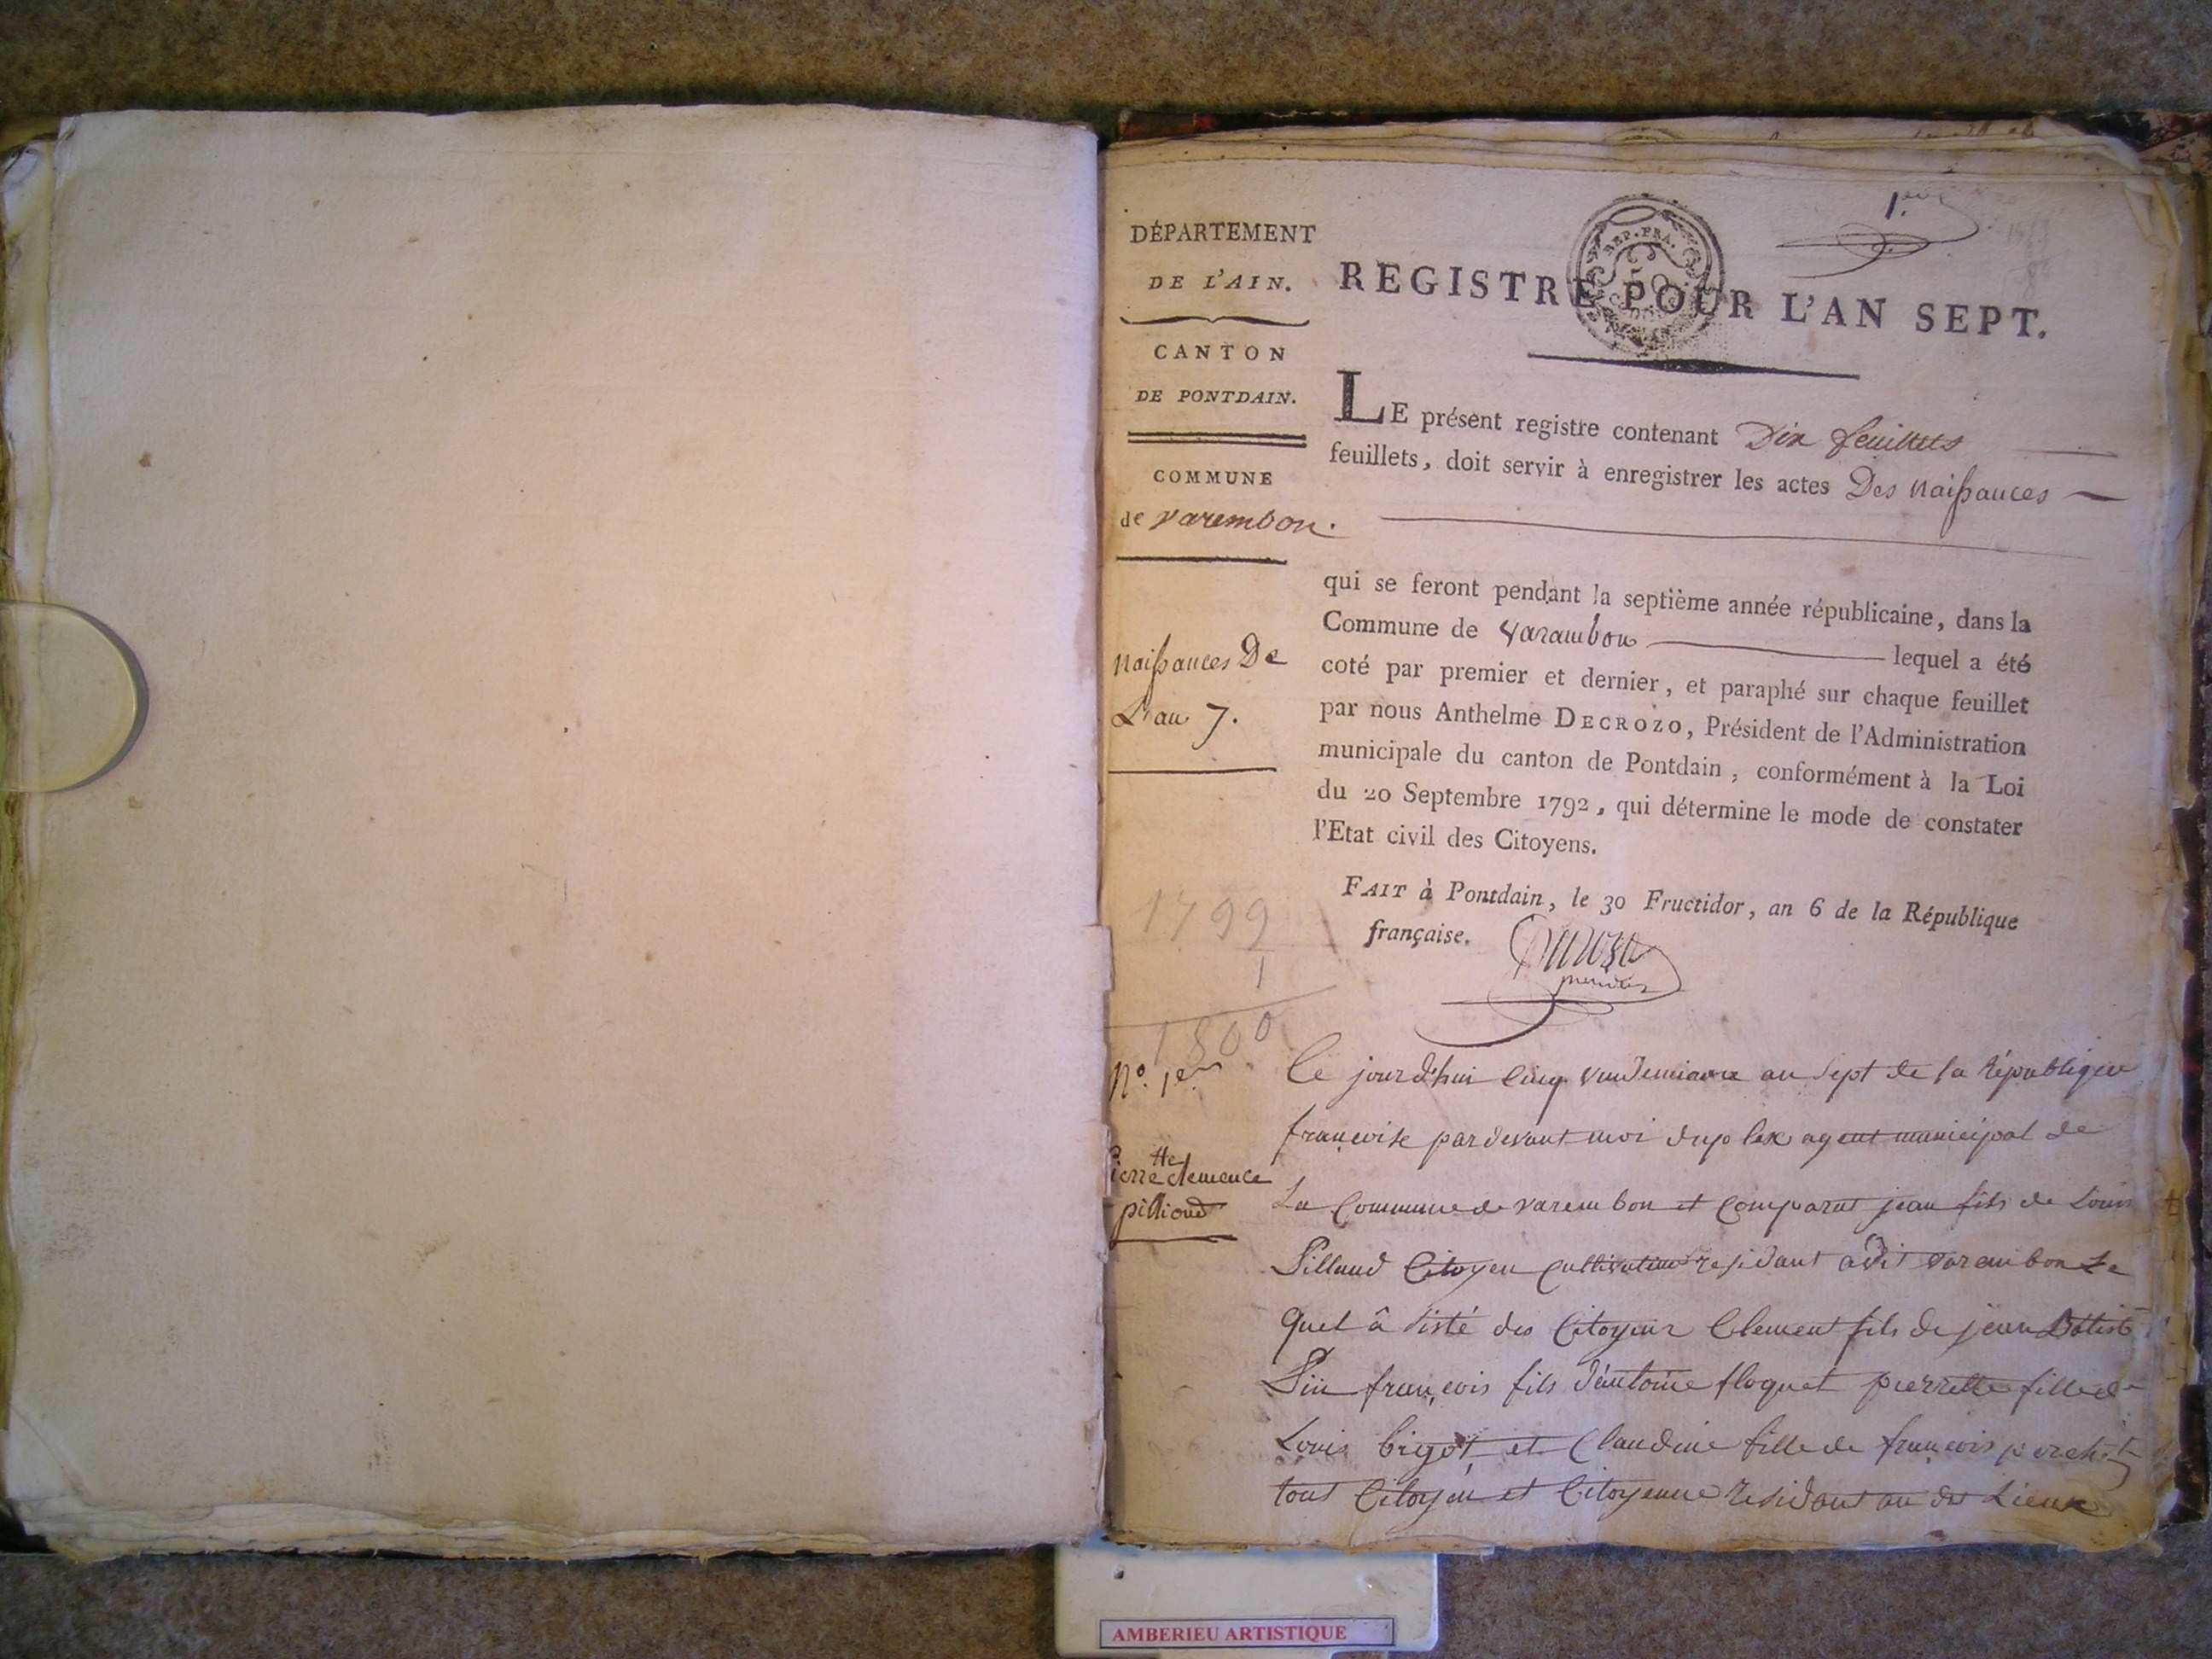 DÉPARTEMENT
DE L'AIN.
CANTON
DE PONTDAIN.
COMMUNE
de varembon.
naissances De
L'an 7.
1799
1
1800
N.º 1er
Pierrette clemence
pilliond
1.er
REP. FRA.
50
REGISTRE POUR L'AN SEPT.
LE présent registre contenant Dix feuillets
feuillets, doit servir à enregistrer les actes Des naissances
qui se feront pendant la septième année républicaine, dans la
Commune de Varambon lequel a été
coté par premier et dernier, et paraphé sur chaque feuillet
par nous Anthelme DECROZO, Président de l'Administration
municipale du canton de Pontdain, conformément à la Loi
du 20 Septembre 1792, qui détermine le mode de constater
l'Etat civil des Citoyens.
FAIT à Pontdain, le 30 Fructidor, an 6 de la République
française.
Ce jourd'hui Cinq vendemiaire an sept de la République
françoise pardevant moi duplex agent municipal de
La Commune de varembon et Comparut jean fils de Louis
Pilliond Citoyen Cultivateur residant adit varembon Le
quel â Disté des Citoyens Clement fils de jean Batist
françois fils d'antoine floquet pierrette fille de
Louis bigot et Claudine fille de françois
tous Citoyen et Citoyenne residant au dit Lieux
AMBERIEU ARTISTIQUE